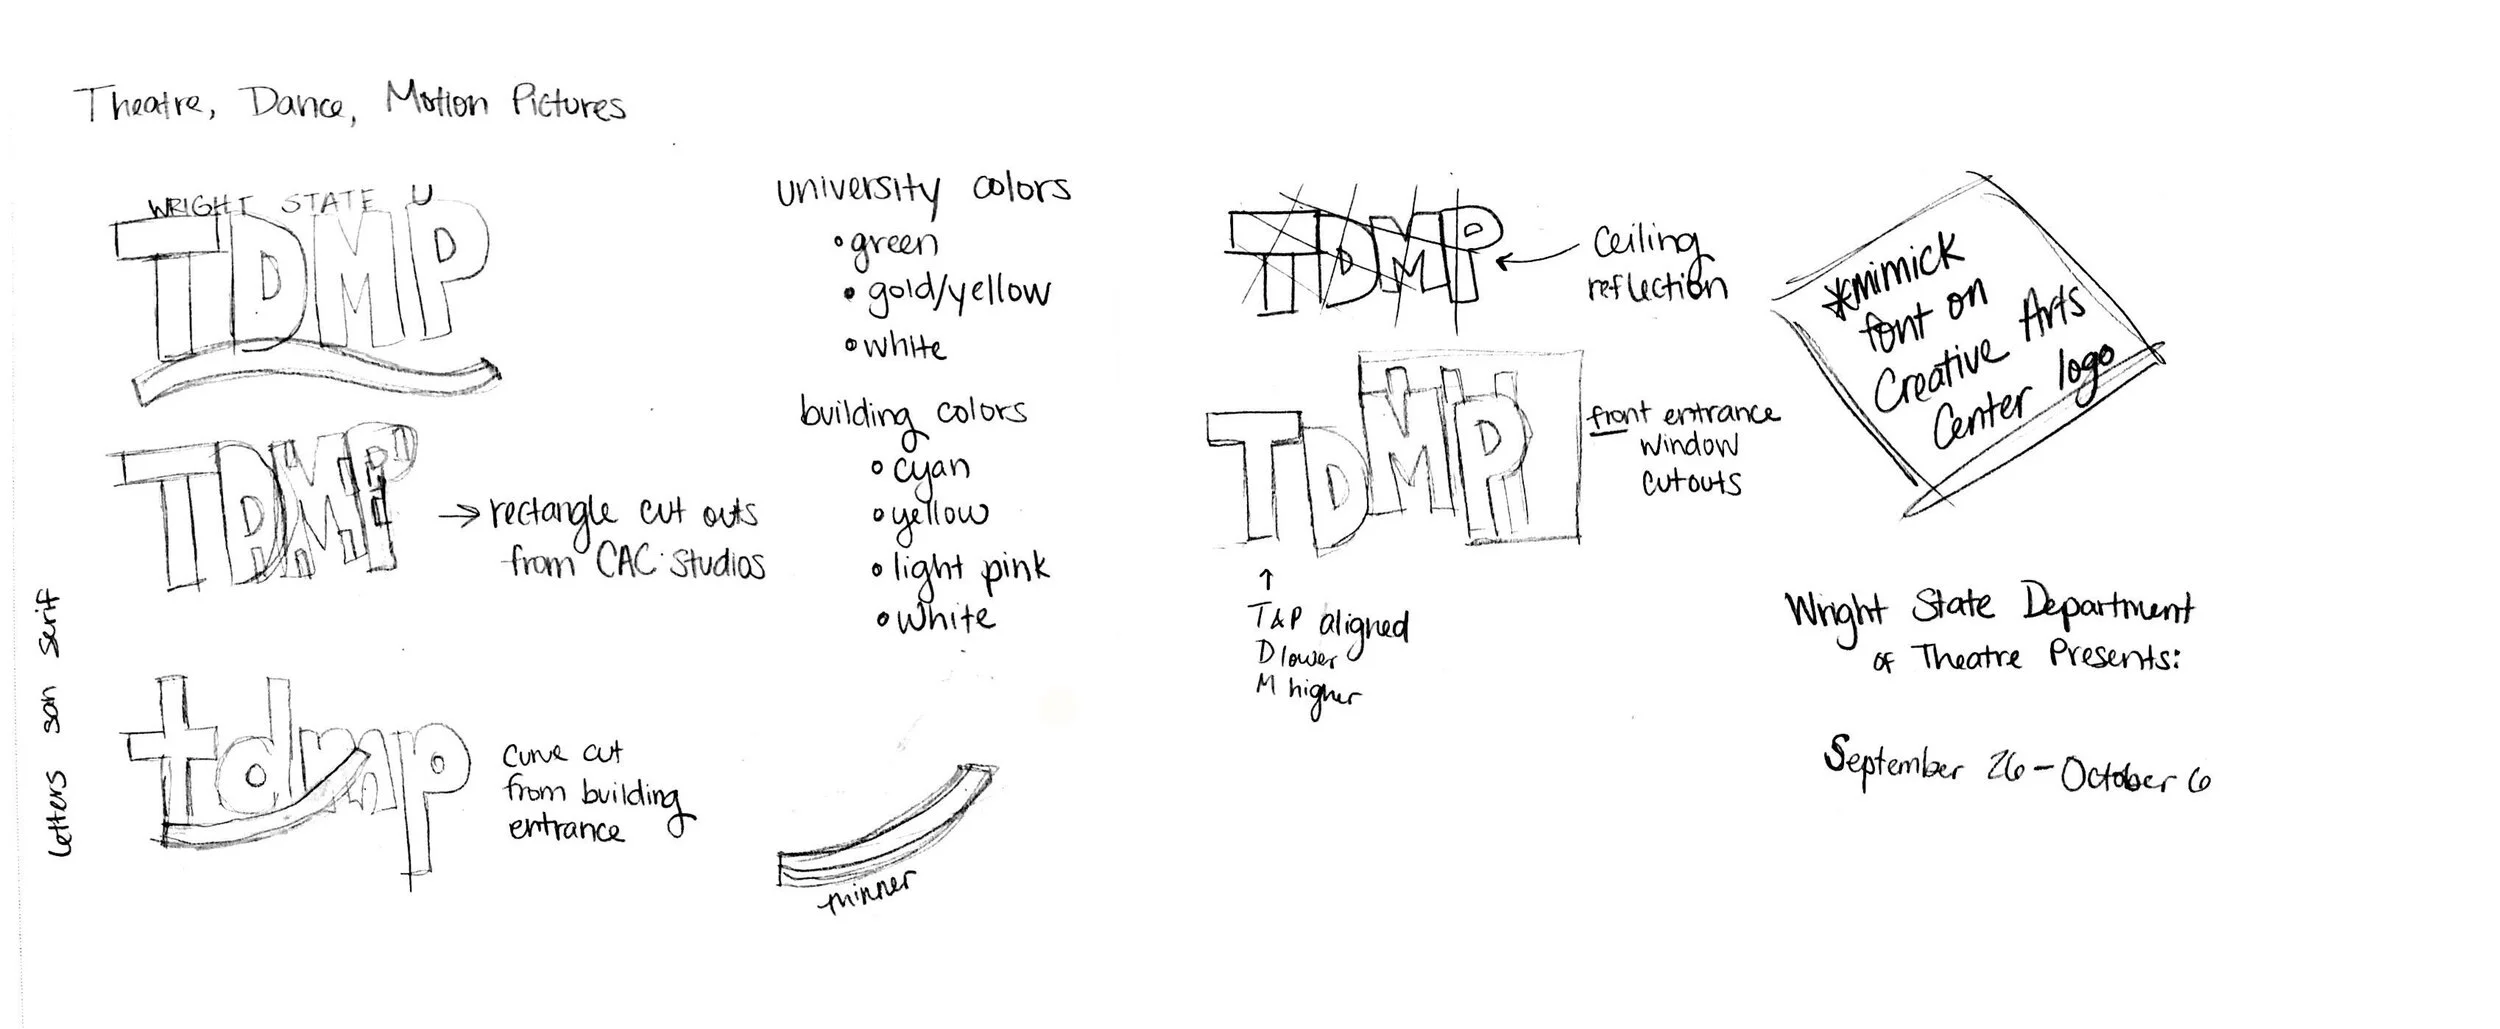 Theatre, Dance, Motion Pictures
WRIGHT STATE U
TDMP
TDMP
→ rectangle cut outs
from CAC studios
Letters san serif
tdmp
curve cut
from building
entrance
university colors
•green
•gold/yellow
•white
building colors
•cyan
•yellow
•light pink
•white
thinner
TDMP
Ceiling
reflection
TDMP
front entrance
window
cutouts
↑
T&P aligned
D lower
M higher
*mimick
font on
Creative Arts
Center logo
Wright State Department
of Theatre Presents:
September 26 - October 6